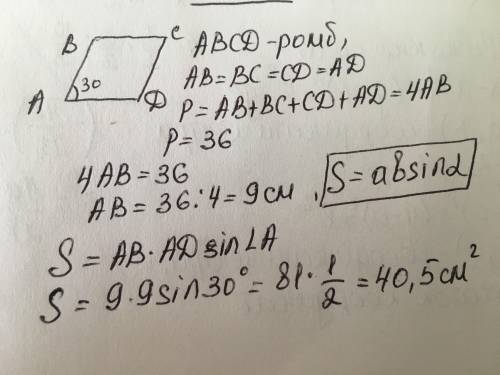 B C
30
A D
ABCD-ромб,
AB=BC=CD=AD
P=AB+BC+CD+AD=4AB
P=36
4AB=36
AB=36:4=9см,
S=absinα
S=AB·AD sin∠A
S=9·9sin30°=81·1/2=40,5см²